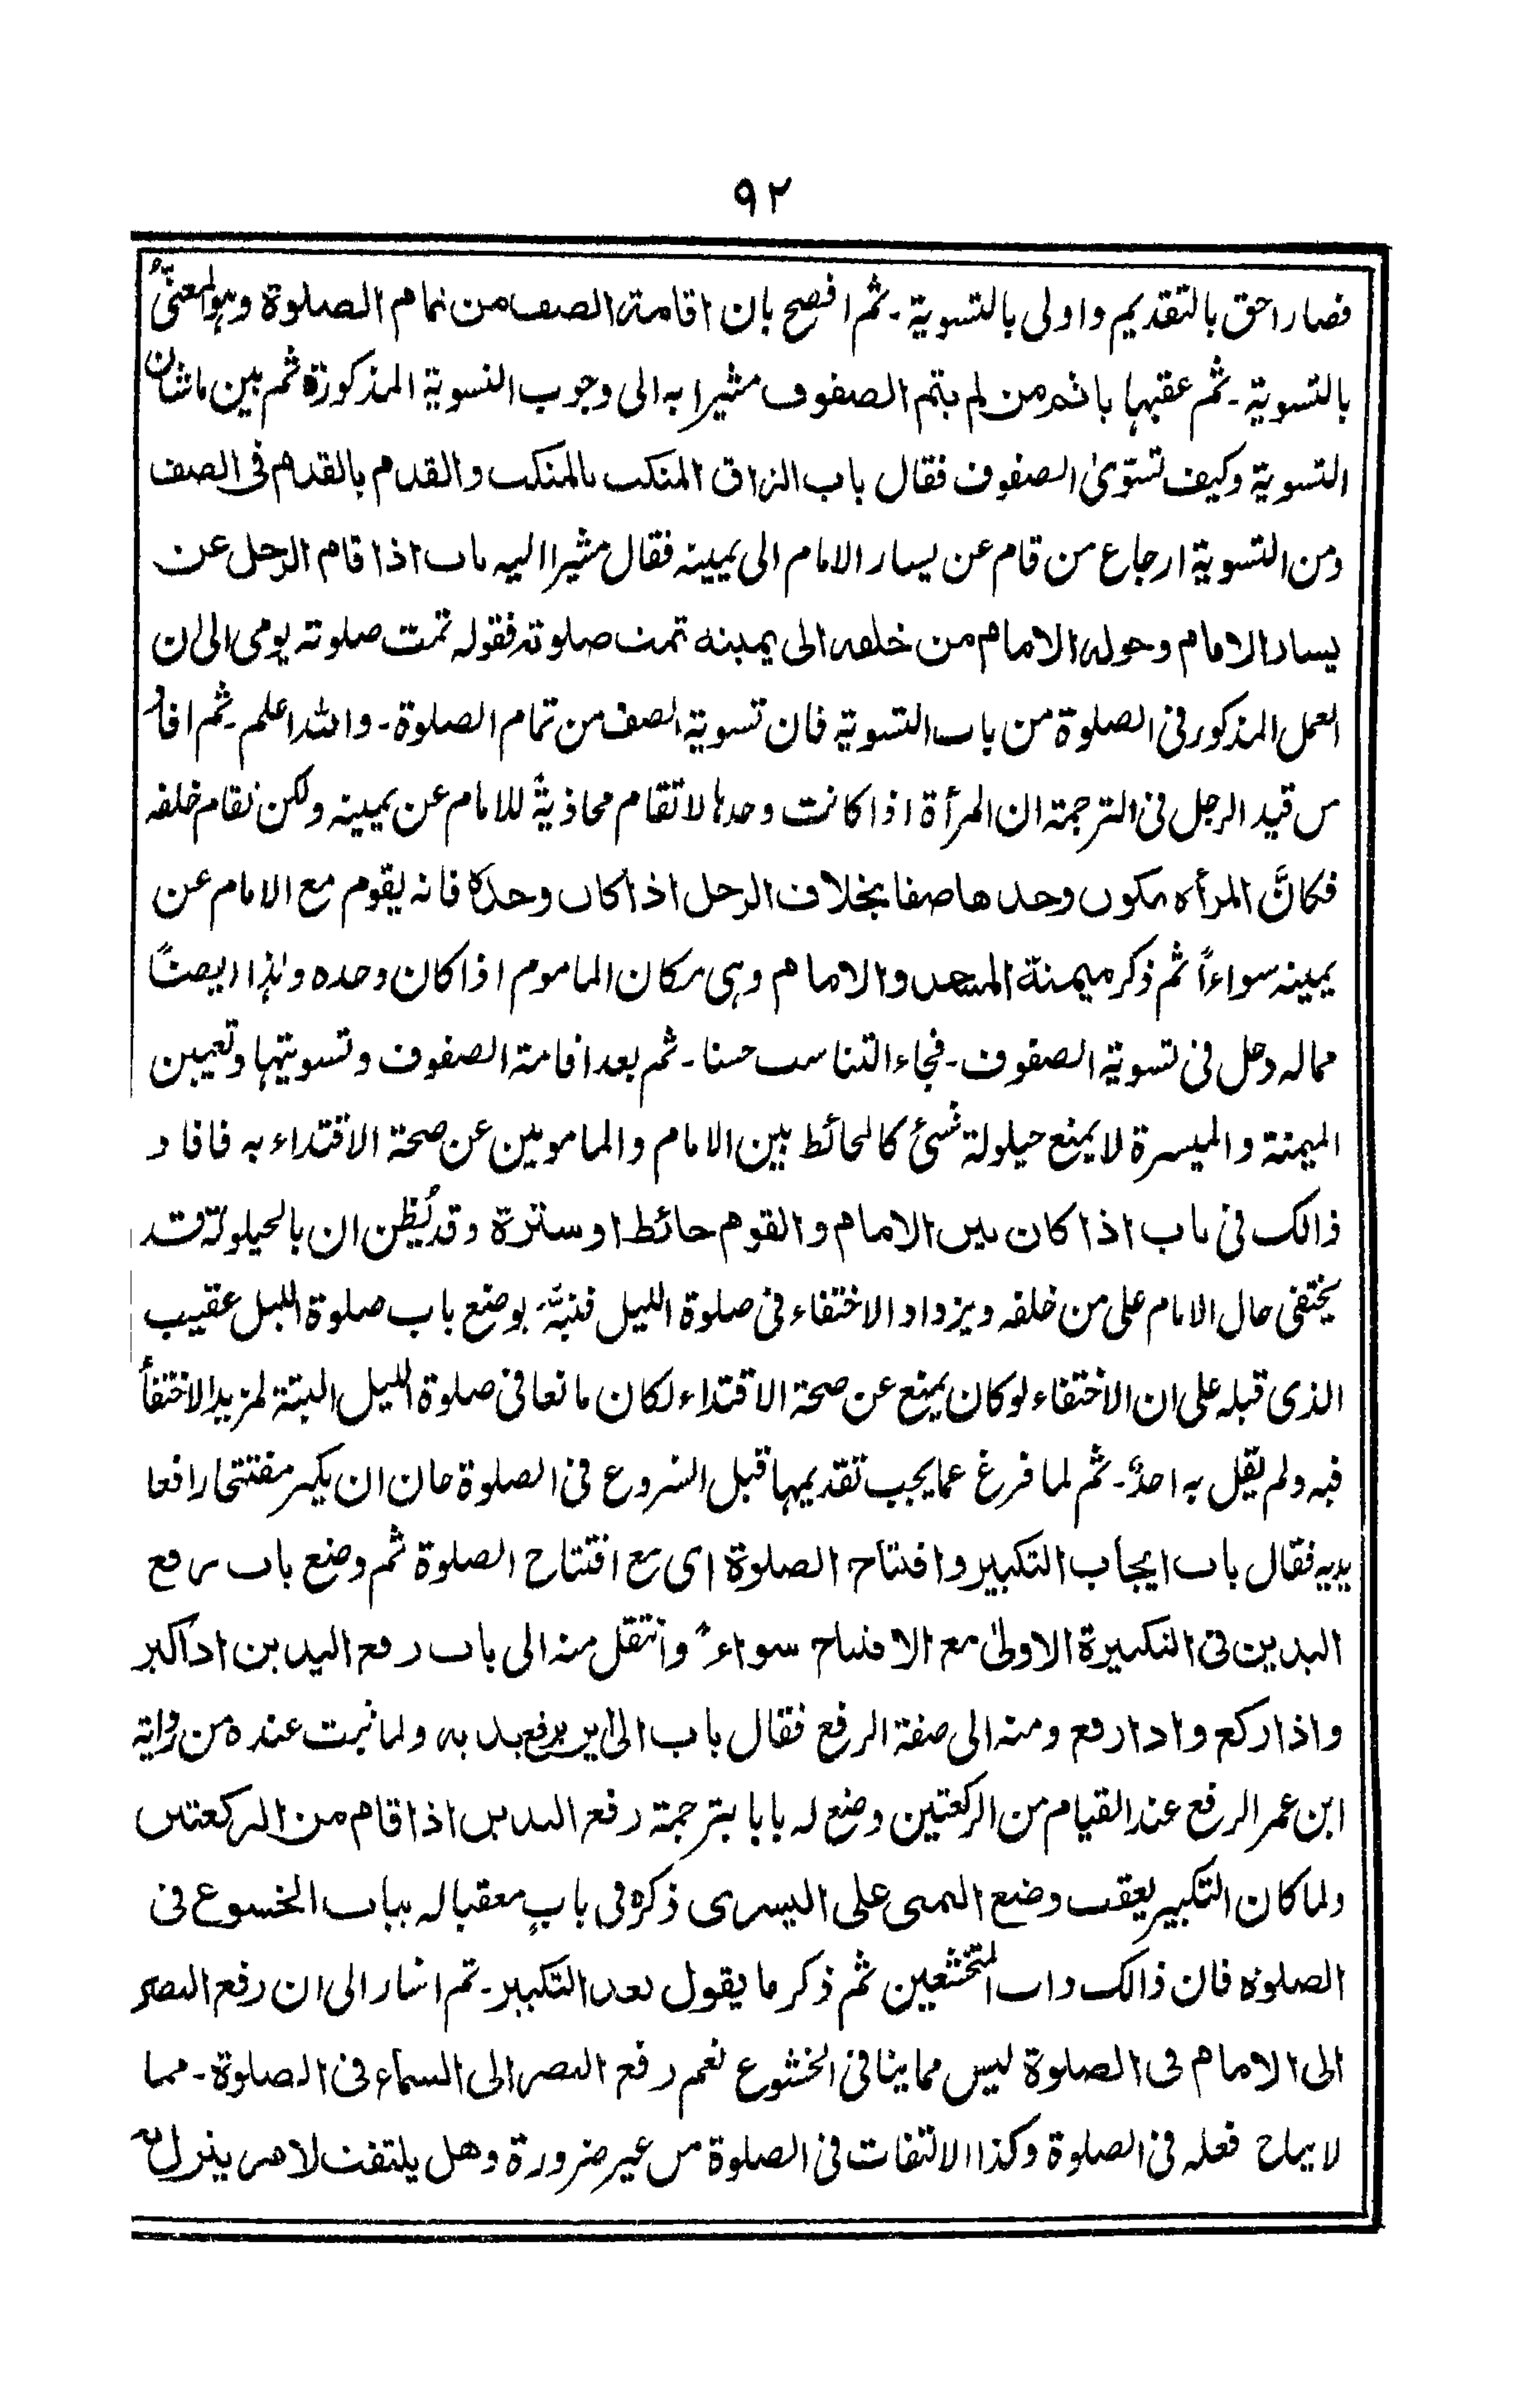 ۹۲
فصار احق بالتقديم واولى بالتسوية۔ ثم افصح بان اقامة الصف من تمام الصلوة وہو المعنیُّ
بالتسوية۔ ثم عقبہا باثم من لم يتم الصفوف مشيرا به الى وجوب التسوية المذكورة ثم بين ماشان
التسوية وكيف تستوىٰ الصفوف فقال باب الزاق المنكب بالمنكب والقدم بالقدم فى الصف
ومن التسوية ارجاع من قام عن يسار الامام الى يمينه فقال مشيرا اليه باب اذا قام الرجل عن
يسار الامام وحوله الامام من خلفه الى يمينه تمت صلوته فقوله تمت صلوته يومى الى ان
العمل المذكور فى الصلوة من باب التسوية فان تسوية الصف من تمام الصلوة۔ والله اعلم۔ ثم افاد
من قيد الرجل فى الترجمة ان المرأة اذا كانت وحدہا لا تقام محاذيةً للامام عن يمينه ولكن تقام خلفه
فكانَّ المرأة تكون وحدها صفا بخلاف الرجل اذا كان وحدہ فانه يقوم مع الامام عن
يمينه سواءاً ثم ذكر ميمنة المسجد والامام وہى مكان الماموم اذا كان وحده وہذا ايضاً
مما له دخل فى تسوية الصفوف۔ فجاء التناسب حسنا۔ ثم بعد اقامة الصفوف وتسويتہا وتعيين
الميمنة والميسرة لا يمنع حيلولة شىئ كالحائط بين الامام والمامومين عن صحة الاقتداء به فافاد
ذالك فى باب اذا كان بين الامام والقوم حائط او سترة وقد يُظن ان بالحيلولة قد
يختفى حال الامام على من خلفه ويزداد الاختفاء فى صلوة الليل فنبَّہ بوضع باب صلوة الليل عقيب
الذى قبله على ان الاختفاء لو كان يمنع عن صحة الاقتداء لكان مانعا فى صلوة الليل البتة لمزيد الاختفأ
فيه ولم يقل به احدٌ۔ ثم لما فرغ عما يجب تقديمہا قبل الشروع فى الصلوة حان ان يكبر مفتتحا رافعا
يديه فقال باب ايجاب التكبير وافتتاح الصلوة اى مع افتتاح الصلوة ثم وضع باب رفع
اليدين فى التكبيرة الاولىٰ مع الافتتاح سواءً وانتقل منه الى باب رفع اليدين اذا كبر
واذا ركع واذا رفع ومنه الى صفة الرفع فقال باب الىٰ اين يرفع يديه ولما ثبت عنده من رواية
ابن عمر الرفع عند القيام من الركعتين وضع له بابا بترجمة رفع اليدين اذا قام من الركعتين
ولما كان التكبير يعقب وضع اليمنى على اليسرى ذكره فى بابٍ معقبا له بباب الخشوع فى
الصلوة فان ذالك داب المتخشعين ثم ذكر ما يقول بعد التكبير۔ ثم اشار الى ان رفع البصر
الى الامام فى الصلوة ليس مما ينافى الخشوع نعم رفع البصر الى السماء فى الصلوة۔ مما
لا يباح فعله فى الصلوة وكذا الالتفات فى الصلوة من غير ضرورة وهل يلتفت لامر ينزل به